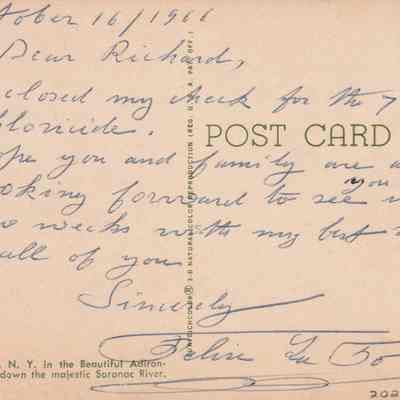 tober 16/1966
Dear Richard,
closed my check for the 7
hloricide.
ope you and family are a
ooking forward to see you
o weeks with my best
all of you
Sincerely
Felix La Fo
POST CARD
NATURAL COLOR REPRODUCTION (REG. U. S. PAT. OFF.)
, N. Y. in the Beautiful Adiron-
down the majestic Saranac River.
202